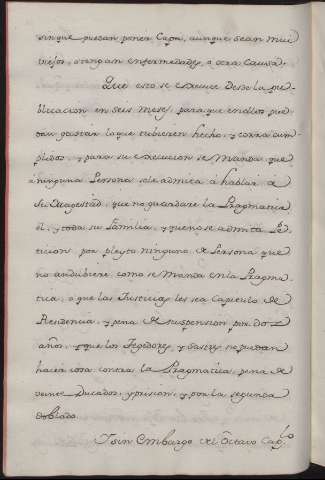 sin que puedan poner Capa, aunque sean mui
viejos, o tengan enfermedades, o otra causa.
Que esto se execute desde la pu-
blicacion en seis meses, para que en ellos pue-
dan gastar lo que tubieren hecho, y corra cum-
plidos, y para su execucion se Manda, que
a ninguna Persona se le admita à hablar a
Su Magestad, que no guardare la Pragmatica
èl, y toda su Familia, y que no se admita Pe-
ticion, por pleyto ninguno de Persona que
no andubiere como se Manda en la Pragma-
tica, o que las Justicias les sea Capitulo de
Residencia, y pena de suspension por dos
años, y que los Tegedores, y Sastres no puedan
hacer cosa contra la Pragmatica, pena de
veinte Ducados, y prision, y por la segunda
doblado.
Y sin Embargo del Octavo Cap.lo